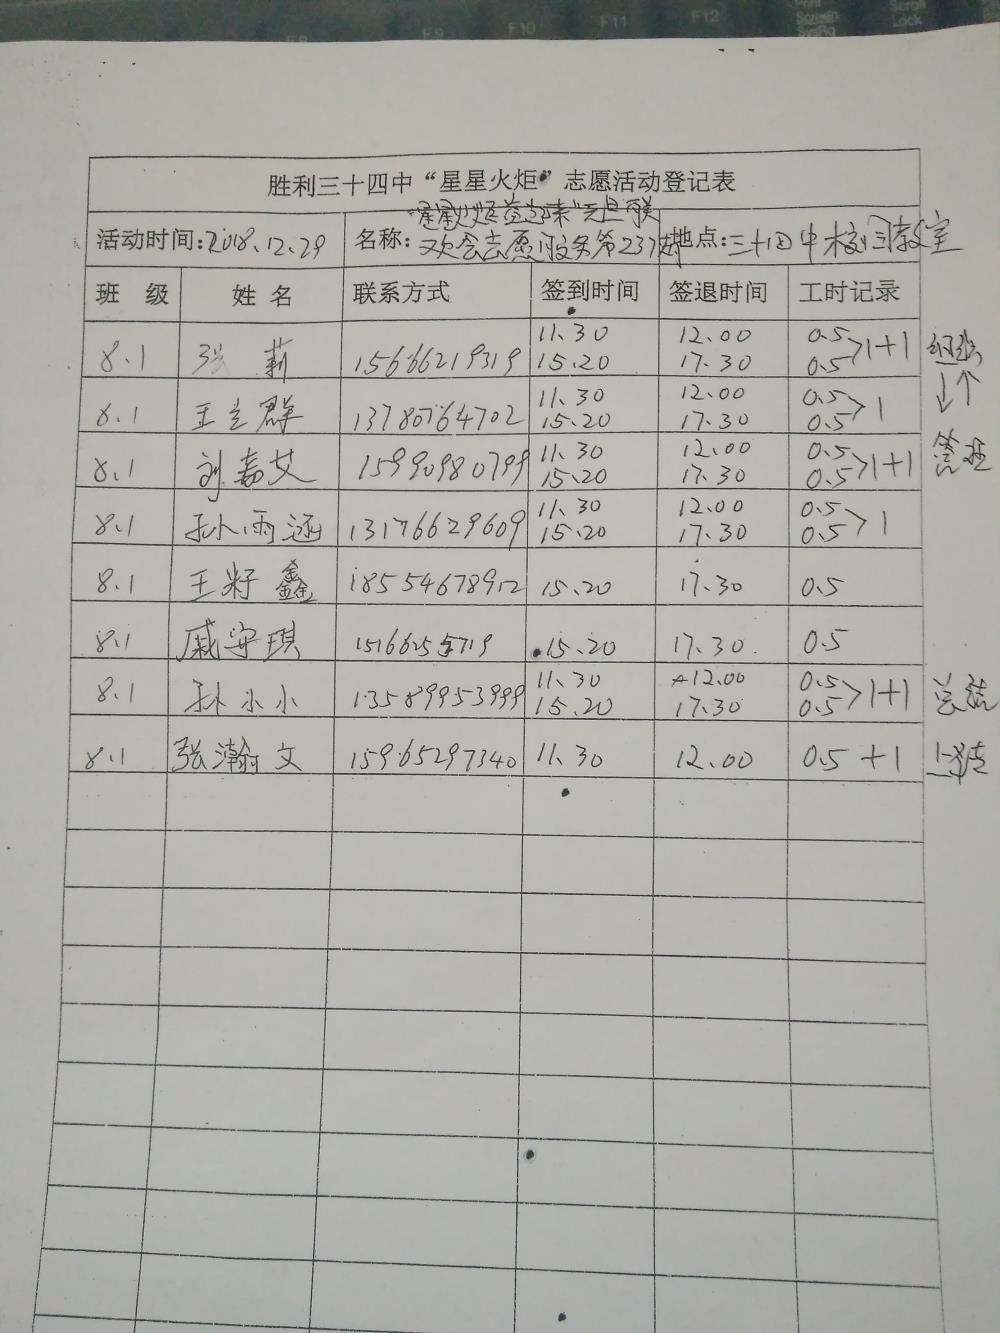 F9 F10 F11 F12 Print Screen SysRq Scroll Lock
胜利三十四中“星星火炬”志愿活动登记表
“星星火炬益起来”元旦联
活动时间:2018.12.29 名称:欢会志愿服务第237期 地点:三十四中校园教室
班 级 姓 名 联系方式 签到时间 签退时间 工时记录
11.30 12.00 0.5
8.1 张 莉 15666219319 15.20 17.30 0.5 >1+1 组织
11.30 12.00 0.5
8.1 王立群 13780764702 15.20 17.30 0.5 >1
管理
11.30 12.00 0.5
8.1 刘嘉艾 15990980799 15.20 17.30 0.5 >1+1
11.30 12.00 0.5
8.1 孙雨涵 13176629609 15.20 17.30 0.5 >1
8.1 王籽鑫 18554678912 15.20 17.30 0.5
8.1 戚安琪 15.20 17.30 0.5
11.30 12.00 0.5
8.1 孙小小 13589953999 15.20 17.30 0.5 >1+1 总结
8.1 张瀚文 15965297340 11.30 12.00 0.5 +1 上传